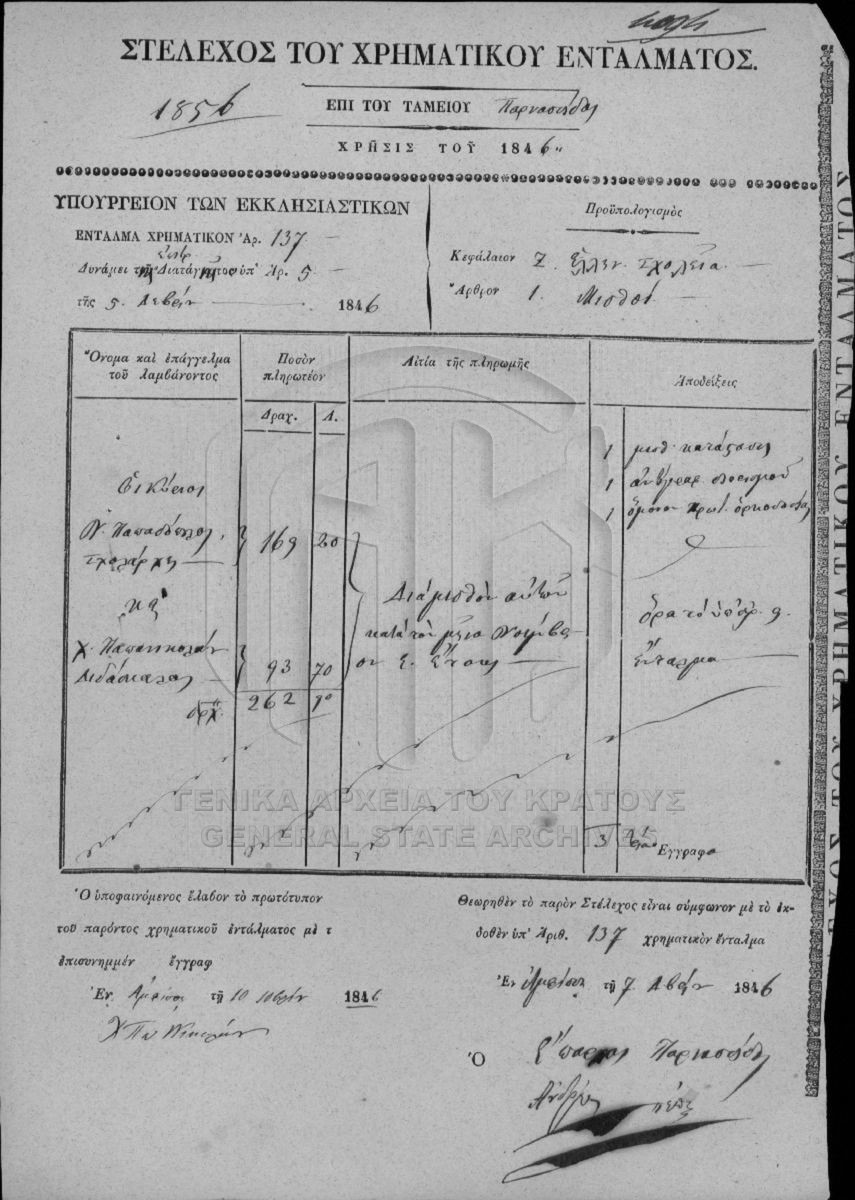 ΣΤΕΛΕΧΟΣ ΤΟΥ ΧΡΗΜΑΤΙΚΟΥ ΕΝΤΑΛΜΑΤΟΣ.
1856
ΕΠΙ ΤΟΥ ΤΑΜΕΙΟΥ Παρνασσίδος
ΧΡΗΣΙΣ ΤΟΥ 1846
ΥΠΟΥΡΓΕΙΟΝ ΤΩΝ ΕΚΚΛΗΣΙΑΣΤΙΚΩΝ
ΕΝΤΑΛΜΑ ΧΡΗΜΑΤΙΚΟΝ Ἀρ. 137
Δυνάμει τῆς Διατάγ ὑπ' Ἀρ. 5
τῆς 5 1846
Προϋπολογισμὸς
Κεφάλαιον Ζ. Ἑλλην. Σχολεῖα
Ἄρθρον 1. Μισθοί
Ὄνομα καὶ ἐπάγγελμα τοῦ λαμβάνοντος
Ποσὸν πληρωτέον
Δραχ. Λ.
Αἰτία τῆς πληρωμῆς
Ἀποδείξεις
Οἱ Κύριοι
Ν. Παπαδόπουλος
Σχολάρχης
169 20
καὶ
Χ. Παπανικολάου
Διδάσκαλος
93 70
262
Διὰ μισθὸν αὐτῶν
κατὰ τὸν μῆνα Νοέμβρι
ον ἔτους
1 μισθ. κατάστασις
1 ἀντίγραφ. διορισμοῦ
1 ὅμοιον πρωτ. ὁρκωμοσίας
ὅρα τὸ ὑπ' ἀρ. 9
ἔνταλμα
3 Ἔγγραφα
ΓΕΝΙΚΑ ΑΡΧΕΙΑ ΤΟΥ ΚΡΑΤΟΥΣ
GENERAL STATE ARCHIVES
Ὁ ὑποφαινόμενος ἔλαβον τὸ πρωτότυπον
τοῦ παρόντος χρηματικοῦ ἐντάλματος μὲ τ
ἐπισυνημμέν ἔγγραφ
Ἐν Ἀμφίσσῃ τῇ 10 1846
Θεωρηθὲν τὸ παρὸν Στέλεχος εἶναι σύμφωνον μὲ τὸ ἐκ-
δοθὲν ὑπ' Ἀριθ. 137 χρηματικὸν ἔνταλμα
Ἐν Ἀμφίσσῃ τῇ 7 1846
Ὁ Ἔπαρχος Παρνασσίδος
ΣΤΕΛΕΧΟΣ ΤΟΥ ΧΡΗΜΑΤΙΚΟΥ ΕΝΤΑΛΜΑΤΟΣ